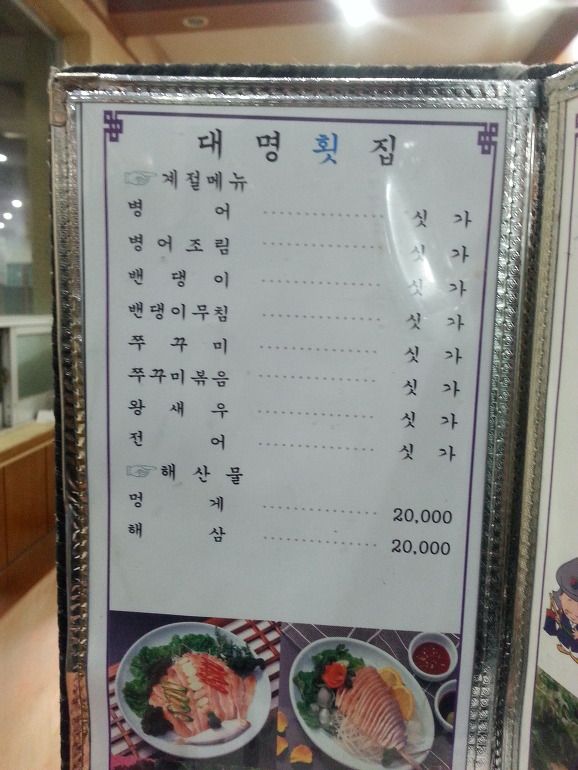 대 명 횟 집
☞계절메뉴
병 어 ................ 싯 가
병어조림 ................ 싯 가
밴 댕 이 ................ 싯 가
밴댕이무침 ................ 싯 가
쭈 꾸 미 ................ 싯 가
쭈꾸미볶음 ................ 싯 가
왕 새 우 ................ 싯 가
전 어 ................ 싯 가
☞해 산 물
멍 게 ................ 20,000
해 삼 ................ 20,000